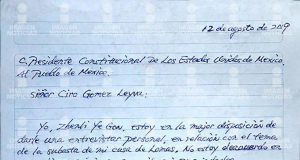 12 de agosto de 2019
C. Presidente Constitucional De Los Estados Unidos De Mexico,
Al Pueblo de Mexico.
Señor Ciro Gomez Leyva.
Yo, Zhenli Ye Gon, estoy en la mejor disposición de
darle una entrevista personal, en relación con el tema
de la subasta de mi casa de Lomas, No estoy deacuerdo en